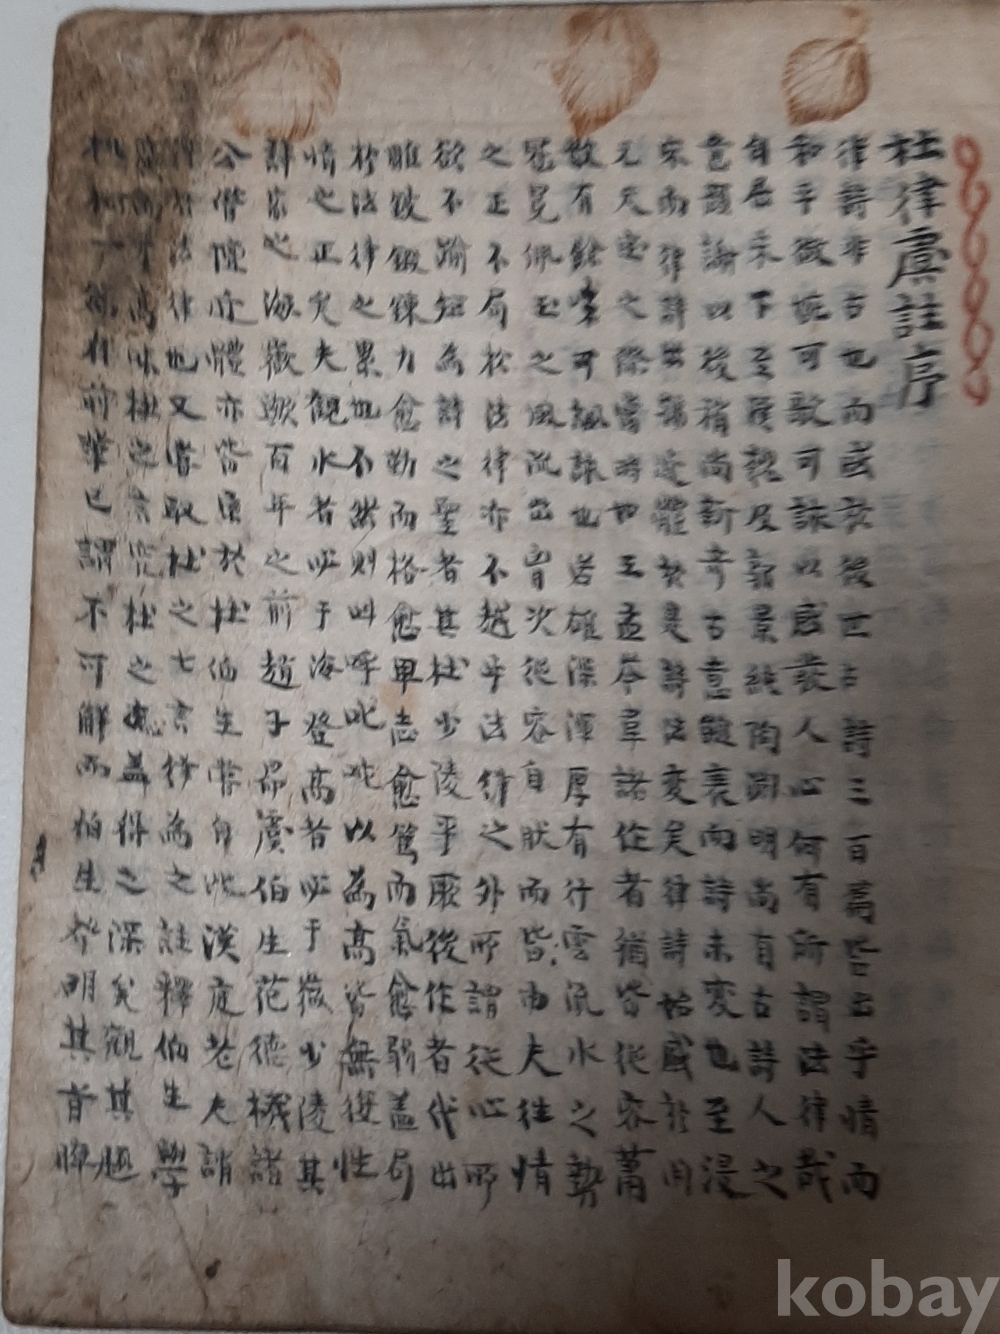 杜律虞註序
律詩非古也而盛於後世古詩三百篇皆出乎情而
和平微婉可歌可詠以感發人心何有所謂法律哉
自屈宋下至漢魏及郭景純陶淵明尚有古詩人之
意顔謝以後稍尚新奇古意雖衰而詩未變也至浸
宋而律詩出號近體於是詩法變矣律詩始盛於開
元天宝之際當時如王孟岑韋諸作者猶皆從容蕭
散有餘味可諷詠也若雄深渾厚有行雲流水之勢
冠冕佩玉之風流出胷次從容自肰而皆由夫性情
之正不局於法律亦不越乎法律之外所謂從心所
欲不踰矩為詩之聖者其杜少陵乎厥後作者代出
雕鎪鍛鍊力愈勤而格愈卑志愈篤而氣愈弱盖局
於法律之累也不然則叫呼叱咤以為高皆無復性
情之正矣夫觀水者必于海登高者必于嶽少陵其
詩家之海嶽歟百年之前趙子昂虞伯生范德機諸
公皆近體亦皆宗於杜伯生嘗自比漢庭老夫誚
律也又嘗取杜之七言律為之註釋伯生學
高味杜之言究杜之心盖得之深矣觀其題
在前輩已謂不可解而伯生發明其旨瞭